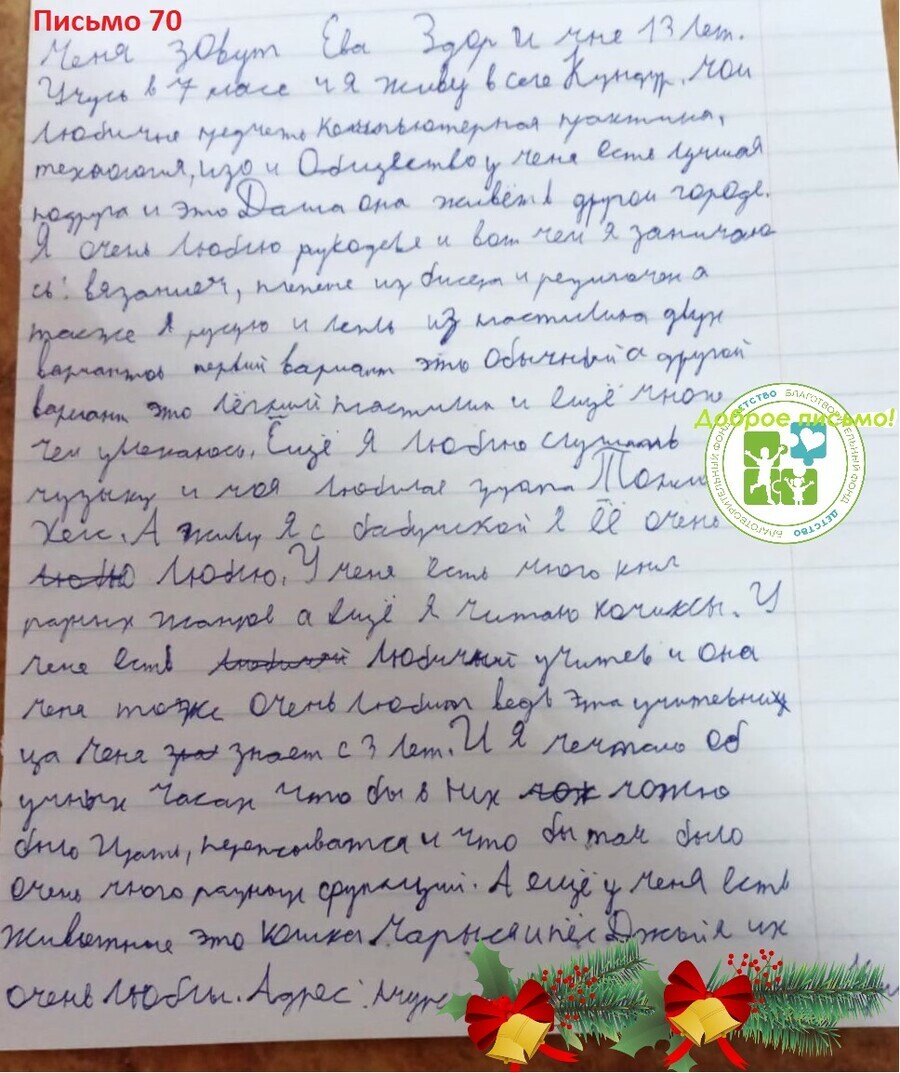 Письмо 70
Меня зовут Ева Здор И мне 13 лет.
Учусь в 7 класе и я живу в селе Кундур. Мои
любимые предметы Компьютерная практика,
технология, изо и Общество у меня есть лучшая
подруга и это Даша она живёт в другом городе.
Я очень люблю рукоделе и вот чем я занимаю
сь: вязанием, плетене из бисера и резиночек а
также я рисую и леплю из пластилина двух
вариантов первый вариант это Обычный а другой
вариант это лёгкий пластилин и ещё много
чем увлекаюсь. Ещё Я люблю слушать
музыку и моя любимая група Токио
Хеис. А живу Я с бабушкой Я Её очень
люблю Люблю. У меня есть много книг
разных жанров а ещё Я читаю комиксы. У
меня есть любимый Любимый учитель и она
меня тоже очень любит ведь эта учительниц
ца меня зна знает с 3 лет. И Я мечтаю об
умных часах что бы в них мож можно
было Играть, переписыватся и что бы там было
очень много разных функций. А ещё у меня есть
Животные это кошка Марыся и пёс Джой я их
очень люблю. Адрес: Амурс
ДЕТСТВО БЛАГОТВОРИТЕЛЬНЫЙ ФОНД ДЕТСТВО БЛАГОТВОРИТЕЛЬНЫЙ ФОНД
Доброе письмо!